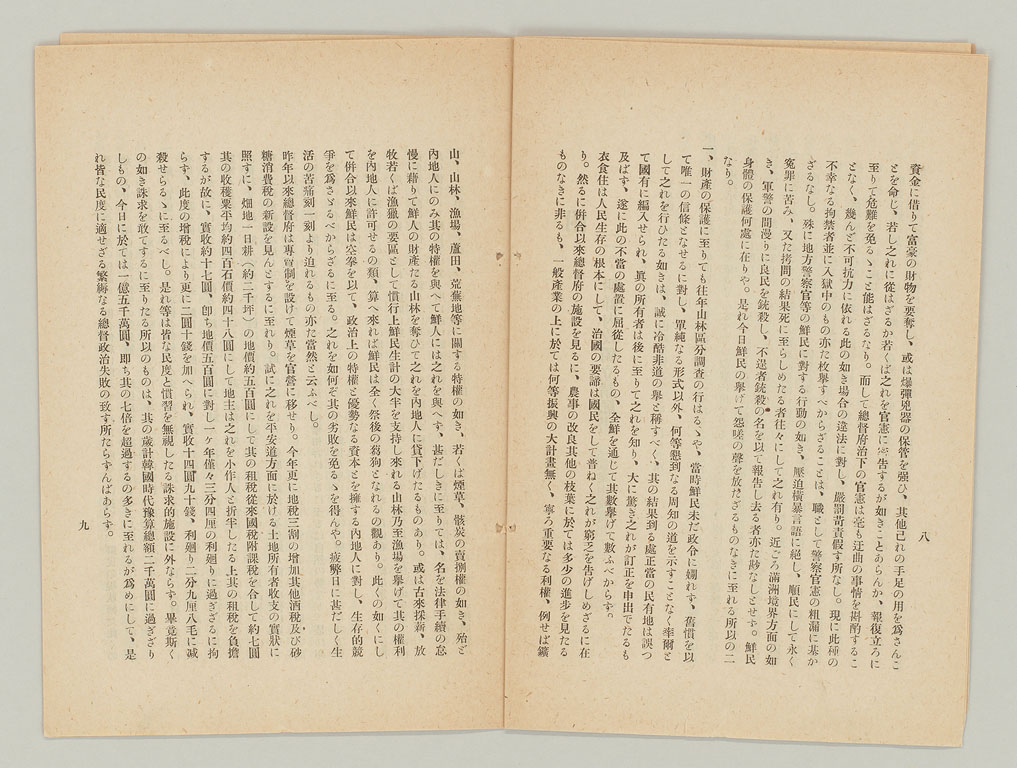 資金に借りて富豪の財物を要奪し、或は爆彈兇器の保管を强ひ、其他已れの手足の用を爲さんこ
とを命じ、若し之れに從はざるか若くば之れを官憲に密告するが如きことあらんか、報復立ろに
至りて危難を免るゝこと能はざるなり。而して總督府治下の官憲は毫も迂曲の事情を斟酌するこ
となく、幾んど不可抗力に依れる此の如き場合の違法に對し、嚴罰苛責假す所なし。現に此種の
不幸なる拘禁者並に入獄中のもの亦た枚擧すべからざることは、職として警察官憲の粗漏に基か
ざるなし。殊に地方警察官等の鮮民に對する行動の如き、壓迫橫暴言語に絕し、順民にして永く
寃罪に苦み、又た拷問の結果死に至らしめたる者往々にして之れ有り。近ごろ滿洲境界方面の如
き、軍警の間漫りに良民を銃殺し、不逞者銃殺の名を以て報告し去る者亦た尠なしとせず。鮮民
身體の保護何處に在りや。是れ今日鮮民の擧げて怨嗟の聲を放たざるものなきに至れる所以の二
なり。
一、財產の保護に至りても往年山林區分調査の行はるゝや、當時鮮民未だ政令に嫺れず、舊慣を以
て唯一の信條となせるに對し、單純なる形式以外、何等懇到なる周知の道を示すことなく率爾と
して之れを行ひたる如きは、誠に冷酷非道の擧と稱すべく、其の結果到る處正當の民有地は誤つ
て國有に編入せられ、眞の所有者は後に至りて之れを知り、大に驚き之れが訂正を申出でたるも
及ばず、遂に此の不當の處置に屈從したるもの、全鮮を通じて其數擧げて數ふべからず。
衣食住は人民生存の根本にして、治國の要諦は國民をして普ねく之れが窮乏を告げしめざるに在
り。然るに倂合以來總督府の施設を見るに、農事の改良其他の枝葉に於ては多少の進步を見たる
ものなきに非るも、一般產業の上に於ては何等振興の大計畫無く、寧ろ重要なる利權、例せば鑛
八
山、山林、漁場、蘆田、荒蕪地等に關する特權の如き、若くば煙草、骸炭の賣捌權の如き、殆ど
內地人にのみ其の特權を與へて鮮人には之れを與へず、甚だしきに至りては、名を法律手續の怠
慢に藉りて鮮人の財產たる山林を奪ひて之れを內地人に貸下げたるものあり。或は古來採薪、放
牧若くば漁獵の要區として慣行上鮮民生計の大半を支持し來れる山林乃至漁場を擧げて其の權利
を內地人に許可せるの類、算へ來れば鮮民は全く祭後の芻狗となれるの觀あり。此くの如くにし
て倂合以來鮮民は空拳を以て、政治上の特權と優勢なる資本とを擁する內地人に對し、生存的競
爭を爲さゞるべからざるに至る。之れを如何ぞ其の劣敗を免るゝを得んや。疲弊日に甚だしく生
活の苦痛刻一刻より迫れるもの亦た當然と云ふべし。
昨年以來總督府は專賣制を設けて煙草を官營に移せり。今年更に地稅三割の增加其他酒稅及び砂
糖消費稅の新設を見んとするに至れり。試に之れを平安道方面に於ける土地所有者收支の實狀に
照すに、畑地一日耕(約二千坪)の地價約五百圓にして其の租稅從來國稅附課稅を合して約七圓
其の收穫粟平均約四百石價約四十八圓にして地主は之れを小作人と折半したる上其の租稅を負擔
するが故に、實收約十七圓、卽ち地價五百圓に對し一ヶ年僅々三分四厘の利廻りに過ぎざるに拘
らず、此度の增稅により更に二圓十錢を加へられ、實收十四圓九十錢、利廻り二分九厘八毛に減
殺せらるゝに至るべし。是れ等は皆な民度と慣習を無視したる誅求的施設に外ならず。畢竟斯く
の如き誅求を敢てするに至りたる所以のものは、其の歲計韓國時代豫算總額二千萬圓に過ぎざり
しもの、今日に於ては一億五千萬圓、卽ち其の七倍を超過するの多きに至れるが爲めにして、是
れ皆な民度に適せざる繁縟なる總督政治失敗の致す所たらずんばあらず。
九